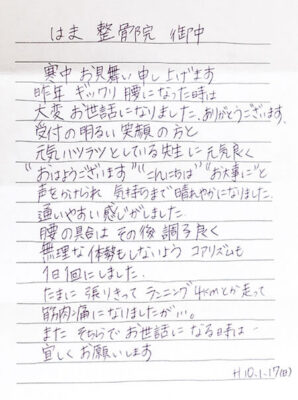 はま 整骨院 御中
寒中 お見舞い 申し上げます
昨年 ギックリ腰になった時は
大変 お世話になりました、ありがとうございます、
受付の明るい笑顔の方と
元気ハツラツとしている先生に元気良く
"おはようございます" "こんにちは" "お大事に"と
声をかけられ 気持ちまで晴れやかになりました
通いやすい感じがしました
腰の具合は その後 調子良く
無理な体勢もしないよう コアリズムも
1日1回にしました
たまに 張りきって ランニング 4kmとか走って
筋肉痛になりましたが…。
また そちらで お世話に なる時は
宜しく お願いします
H10.1.17(日)